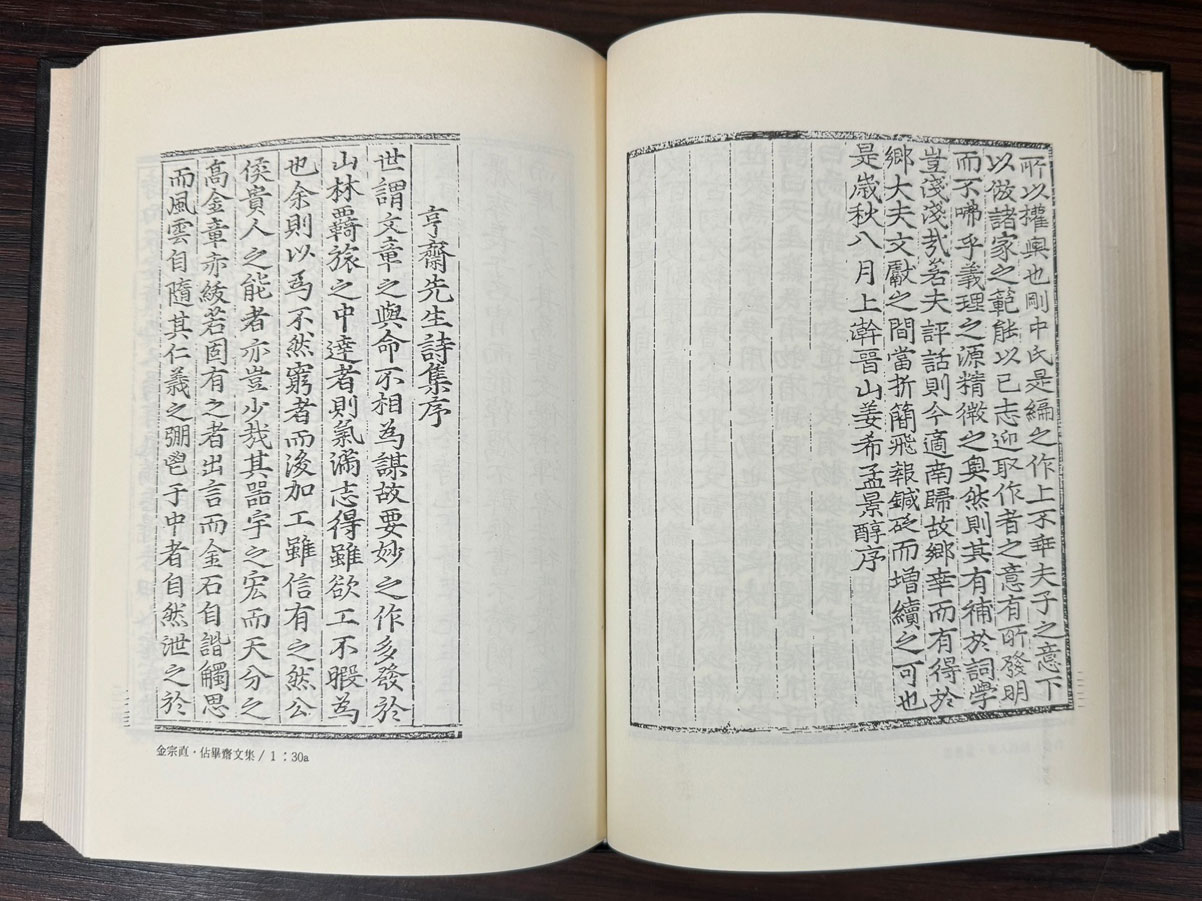 所以權輿也剛中氏是編之作上不幸夫子之意下
以倣諸家之範能以已志迎取作者之意有所發明
而不咈乎義理之源精微之奧然則其有補於詞學
豈淺淺㦲若夫評話則今適南歸故鄉幸而有得於
鄉大夫文獻之間當折簡飛報鍼砭而增續之可也
是歲秋八月上澣晉山姜希孟景醇序
亨齋先生詩集序
世謂文章之與命不相為謀故要妙之作多發於
山林羇旅之中達者則氣滿志得雖欲工不暇為
也余則以爲不然窮者而後加工雖信有之然公
侯貴人之能者亦豈少哉其器宇之宏而天分之
高金章亦紱若固有之者出言而金石自諧觸思
而風雲自隨其仁義之弸鬯于中者自然泄之於
金宗直·佔畢齋文集 / 1 : 30a